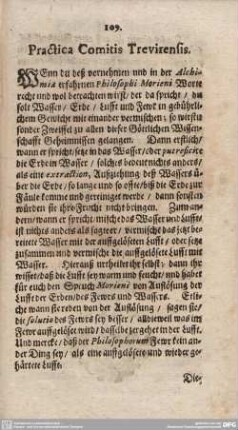 109.
Practica Comitis Trevirensis.
WEnn du deß vernehmen und in der Alchi-
mia erfahrnen Philosophi Morieni Worte
recht und wol betrachten wilst / der da spricht / du
solt Wasser / Erde / Lufft und Fewr in gebührli-
chem Gewicht mit einander vermischen / so wirstu
sonder Zweiffel zu allen dieser Göttlichen Wissen-
schafft Geheimnissen gelangen. Dann erstlich /
wann er spricht / setze in das Wasser / oder putreficire
die Erde in Wasser / solches bedeut nichts anders /
als eine extraction, Außziehung deß Wassers ü-
ber die Erde / so lange und so offte / biß die Erde zur
Fäule komme und gereiniget werde / dann sonsten
würden sie ihre Frucht nicht bringen. Zum an-
dern / wann er spricht / mische das Wasser und Lufft /
ist nichts anders als sagte er / vermisch das jetzt be-
reitete Wasser mit der auffgelöseten Lufft / oder setze
zusammen und vermische die auffgelösete Lufft mit
Wasser. Hierauß urtheilet ihr selbst / dann ihr
wisset / daß die Lufft sey warm und feucht / und habet
für euch den Spruch Morieni von Aufflösung der
Lufft der Erden / des Fewrs und Wassers. Etli-
che wann sie reden von der Aufflösung / sagen sie /
die solutio des Fewrs sey besser / alldieweil was im
Fewr auffgelöset wird / dasselbe zergehet in der Lufft.
Und mercke / daß der Philosophorum Fewr kein an-
der Ding sey / als eine auffgelösete und wieder ge-
härtete Lufft.
Die-